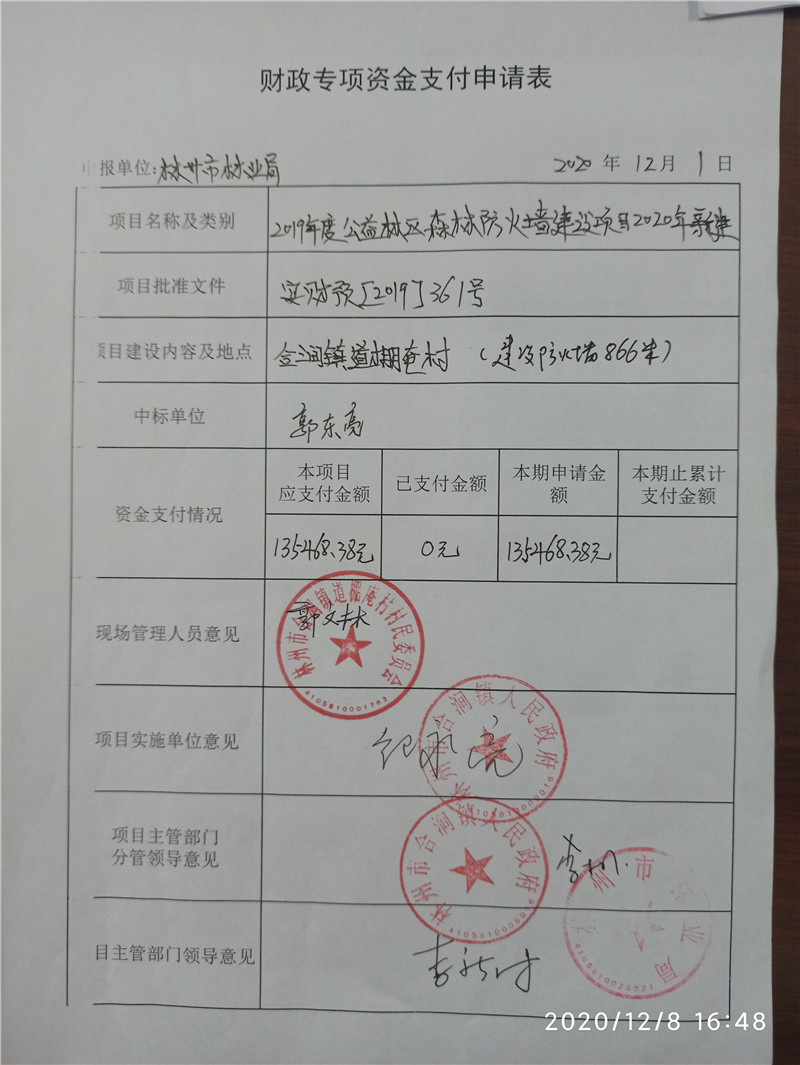 财政专项资金支付申请表
申报单位:林州市林业局 2020年12月1日
项目名称及类别 2019年度公益林区森林防火墙建设项目2020年新建
项目批准文件 安财预[2019]361号
项目建设内容及地点 合涧镇道棚庵村 (建设防火墙866米)
中标单位 郭东亮
资金支付情况
本项目
应支付金额
已支付金额
本期申请金
额
本期止累计
支付金额
135468.38元 0元 135468.38元
现场管理人员意见
郭文林
林州市合涧镇道棚庵村村民委员会
4105810001763
项目实施单位意见
林州市合涧镇人民政府
项目主管部门
分管领导意见
林州市合涧镇人民政府
林州市林业局
目主管部门领导意见
2020/12/8 16:48